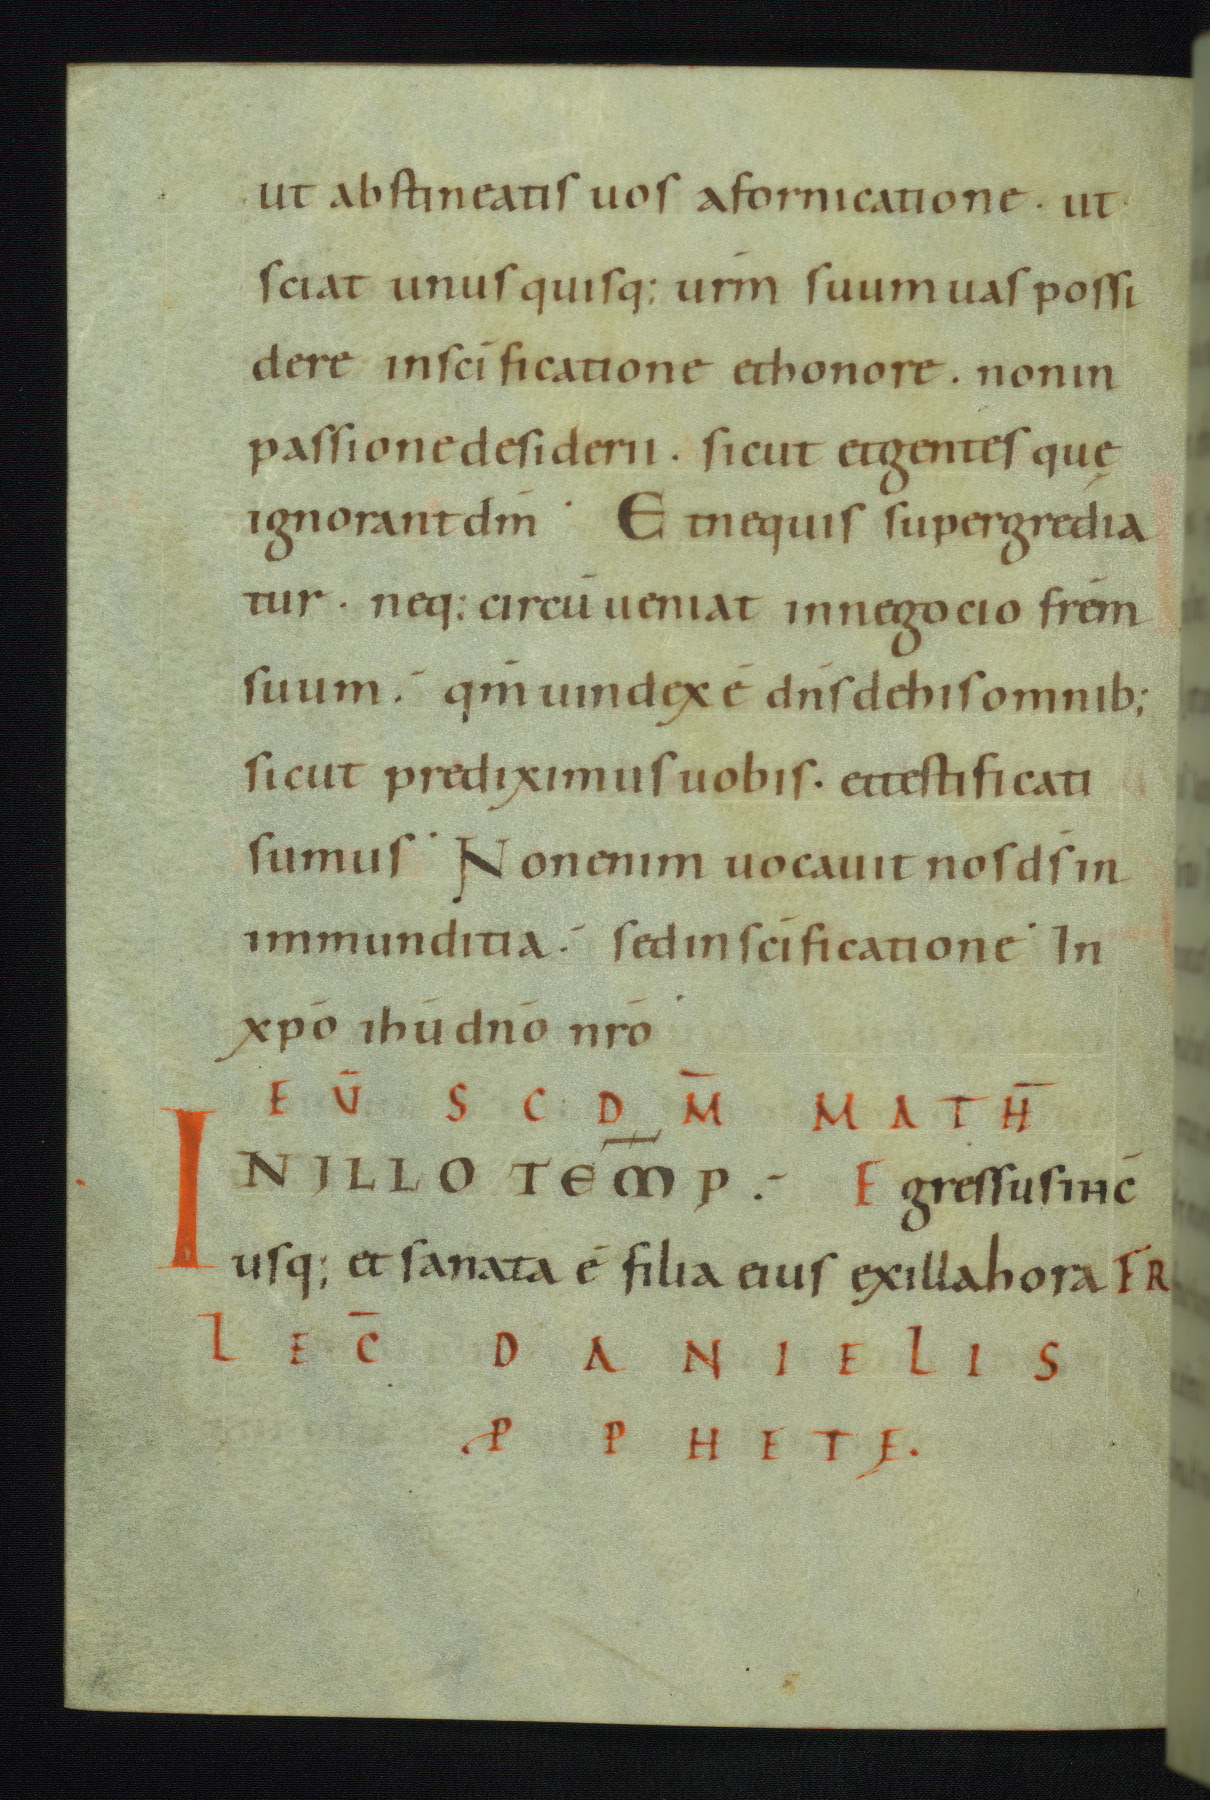 ut abstineatis uos afornicatione · ut
sciat unusquisq; urm̄ suum uas possi
dere insc̄ificatione ethonore . nonin
passione desiderii . sicut etgentes quę
ignorant dm̄ · Et nequis supergredia
tur . neq; circū ueniat innegocio frem̄
suum . qm̄ uindex ē dn̄s dehis omnib;
sicut prediximus uobis . ettestificati
sumus · Non enim uocauit nos ds̄ in
immunditia . sed in sc̄ificatione · In
xpō ihū dnō nrō
EŪ SCDM̄ MATH̄
IN ILLO TEM̄P . Egressus inc̄
usq; et sanata ē filia eius exillahora FR
LEC̄ DANIELIS
P PHETĘ.